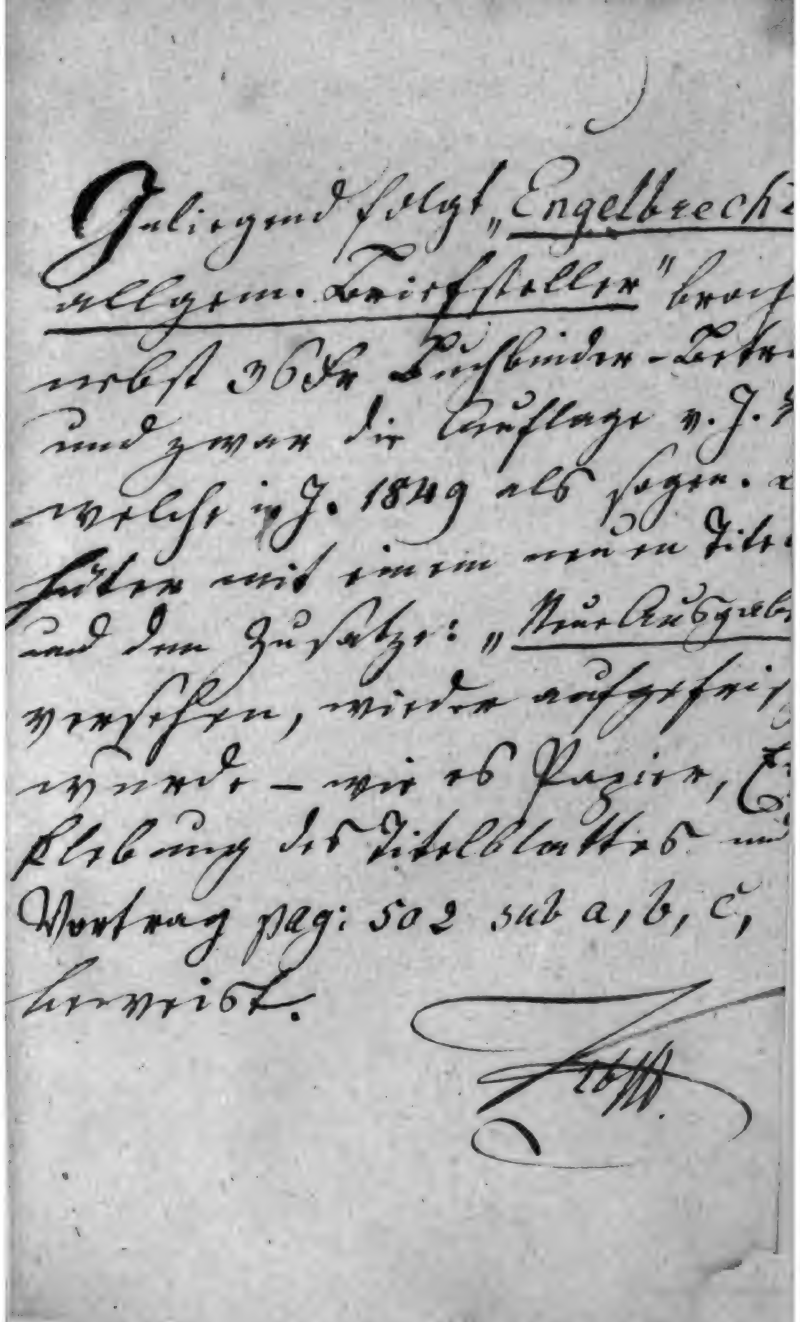 Inliegend folgt „Engelbrecht
allgem. Briefsteller" broch
nebst 36 Kr Buchbinder-Betr
und zwar die Auflage v. J.
welche in J. 1849 als sogen.
hüter mit einem neuen Tite
und dem Zusatze: „Neue Ausgabe
versehen, wieder aufgefris
wurde – wie es Papier,
klebung des Titelblattes und
Vortrag pag: 502 sub a, b, c,
beweist.